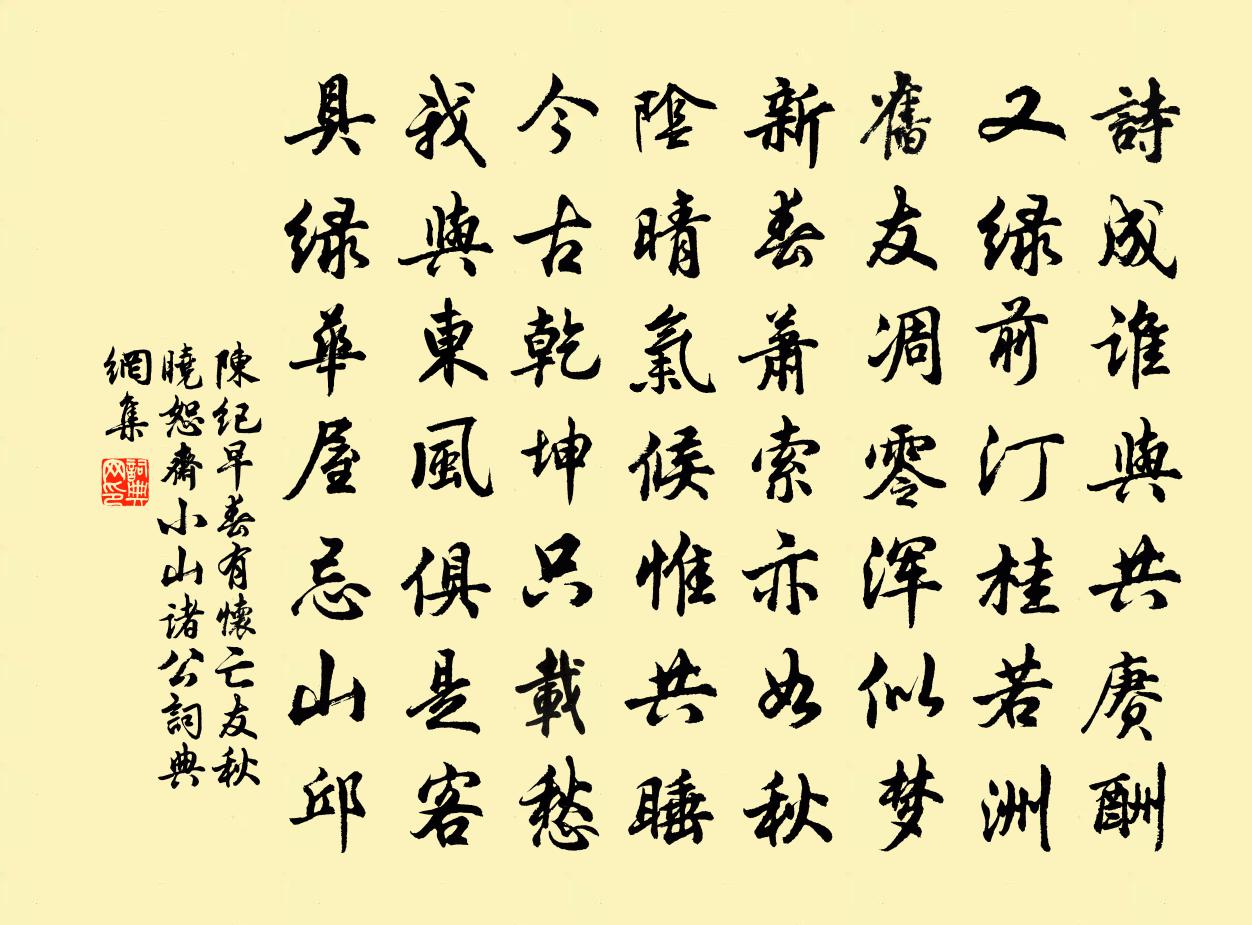 詩成誰與共賡酬
又绿前汀桂若洲
舊友凋零浑似梦
新春蕭索亦如秋
陰晴氣候惟共睡
今古乾坤只載愁
我與東風俱是客
具绿華屋忌山邱
陳纪早春有懷亡友秋
曉恕齋小山诸公詞典
網集
詞典
网印